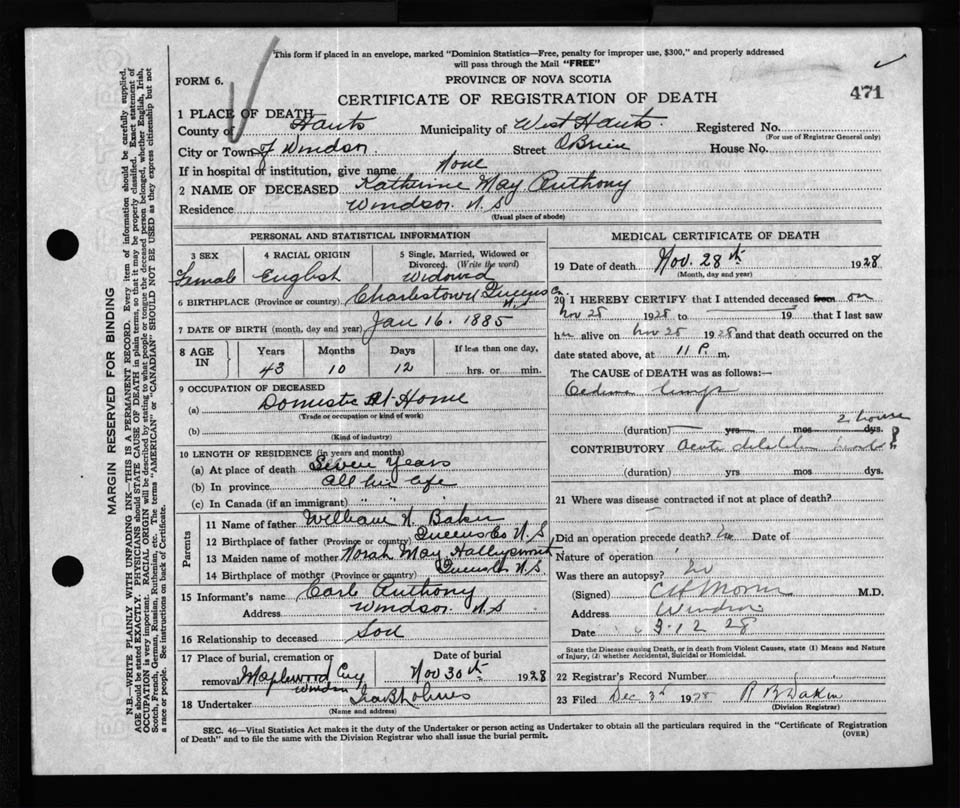 This form if placed in an envelope, marked "Dominion Statistics—Free, penalty for improper use, $300," and properly addressed
will pass through the Mail "FREE"
FORM 6.
PROVINCE OF NOVA SCOTIA
CERTIFICATE OF REGISTRATION OF DEATH
471
1 PLACE OF DEATH
County of Hants Municipality of West Hants Registered No.
(For use of Registrar General only)
City or Town of Windsor Street OBrien House No.
If in hospital or institution, give name None
2 NAME OF DECEASED Katherine May Anthony
Residence Windsor N.S
(Usual place of abode)
PERSONAL AND STATISTICAL INFORMATION
3 SEX 4 RACIAL ORIGIN 5 Single, Married, Widowed or Divorced. (Write the word)
Female English Widowed
6 BIRTHPLACE (Province or country) Charlestown Queens Co. N.S
7 DATE OF BIRTH (month, day and year) Jan 16. 1885
8 AGE IN Years Months Days If less than one day,
43 10 12 hrs. or min.
9 OCCUPATION OF DECEASED
(a) Domestic At Home
(Trade or occupation or kind of work)
(b)
(Kind of industry)
10 LENGTH OF RESIDENCE (in years and months)
(a) At place of death Seven Years
(b) In province All her life
(c) In Canada (if an immigrant) " " "
Parents
11 Name of father William N. Baker
12 Birthplace of father (Province or country) Queens Co N.S
13 Maiden name of mother Norah May
14 Birthplace of mother (Province or country) Queens Co N.S.
15 Informant's name Carl Anthony
Address Windsor. N.S
16 Relationship to deceased Son
17 Place of burial, cremation or removal Maplewood Cey Windsor
Date of burial Nov 30th 1928
18 Undertaker
(Name and address)
MEDICAL CERTIFICATE OF DEATH
19 Date of death Nov. 28th 1928
(Month, day and year)
20 I HEREBY CERTIFY that I attended deceased from on
Nov 28 1928 to 19 that I last saw
her alive on Nov 28 1928 and that death occurred on the
date stated above, at 11 P. m.
The CAUSE of DEATH was as follows:—
Oedema lungs
2 hours
(duration) yrs mos dys.
CONTRIBUTORY Acute
(duration) yrs mos dys.
21 Where was disease contracted if not at place of death?
Did an operation precede death? No Date of
Nature of operation
Was there an autopsy? No
(Signed) M.D.
Address Windsor
Date 3.12 28
State the Disease causing Death, or in death from Violent Causes, state (1) Means and Nature
of Injury, (2) whether Accidental, Suicidal or Homicidal.
22 Registrar's Record Number
23 Filed Dec 3d 1928 R B Dakin
(Division Registrar)
SEC. 46—Vital Statistics Act makes it the duty of the Undertaker or person acting as Undertaker to obtain all the particulars required in the "Certificate of Registration
of Death" and to file the same with the Division Registrar who shall issue the burial permit.
(OVER)
MARGIN RESERVED FOR BINDING
N.B.—WRITE PLAINLY WITH UNFADING INK—THIS IS A PERMANENT RECORD. Every item of information should be carefully supplied.
AGE should be stated EXACTLY. PHYSICIANS should STATE CAUSE OF DEATH in plain terms, so that it may be properly classified. Exact statement of
OCCUPATION is very important. RACIAL ORIGIN will be described by stating to what people or tongue the deceased person belonged, whether English, Irish,
Scotch, French, German, Russian, Ruthenian, etc. The terms "AMERICAN" or "CANADIAN" SHOULD NOT BE USED as they express citizenship but not
a race or people. See instructions on back of Certificate.